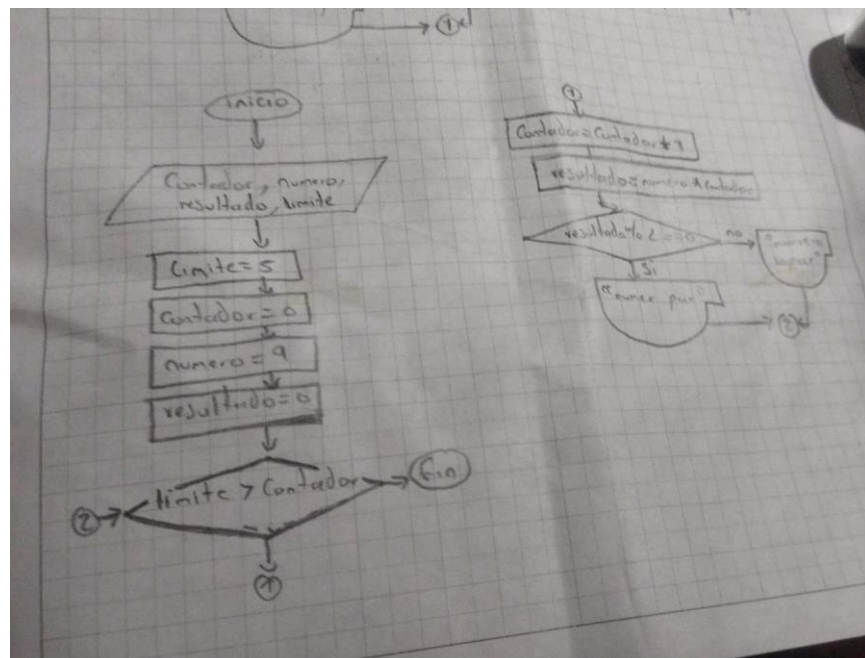 ①
inicio
Contador, numero,
resultado, limite
limite = 5
contador = 0
numero = 9
resultado = 0
② limite > Contador Fin
①
①
Contador = Contador + 1
resultado = numero * Contador
resultado % 2 == 0 no
si
"numer par" ②